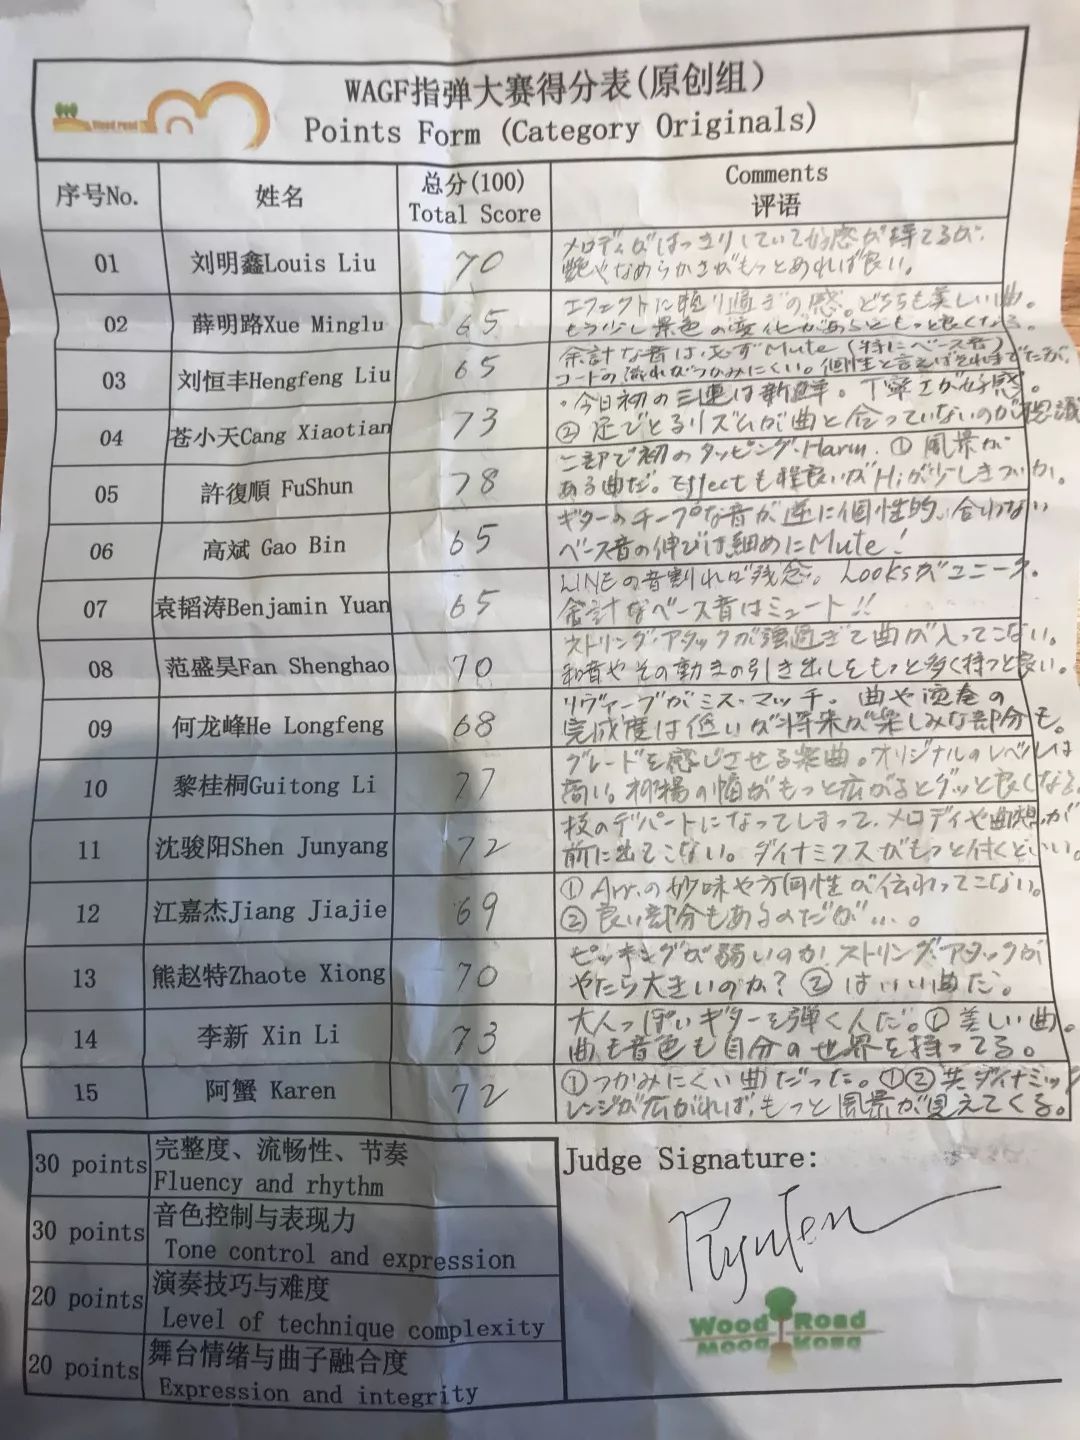 Wood road
WAGF指弹大赛得分表(原创组)
Points Form (Category Originals)
序号No. 姓名 总分(100) Total Score Comments 评语
01 刘明鑫Louis Liu 70
メロディがはっきりしていて好感が持てるが、
艶やなめらかさがもっとあれば良い。
02 薛明路Xue Minglu 65
エフェクトに頼り過ぎの感。どちらも美しい曲。
もう少し景色の変化があるともっと良くなる。
03 刘恒丰Hengfeng Liu 65
余計な音は、必ずMute(特にベース音)
コードの流れがつかみにくい。個性と言えばそれまでだが、
04 苍小天Cang Xiaotian 73
・今日初の三連は新鮮。丁寧さが好感。
② 足でとるリズムが曲と合っていないのが不思議
05 許復順 FuShun 78
二部で初のタッピング・Harm. ① 風景が
ある曲だ。Effectも程良いがHiが少しきついか。
06 高斌 Gao Bin 65
ギターのチープな音が逆に個性的、合わない
ベース音の伸びは細めにMute!
07 袁韬涛Benjamin Yuan 65
LINEの音割れが残念。Looksがユニーク。
余計なベース音はミュート!!
08 范盛昊Fan Shenghao 70
ストリング・アタックが強過ぎて曲が入ってこない。
和音やその動きの引き出しをもっと多く持つと良い。
09 何龙峰He Longfeng 68
リヴァーブがミス・マッチ。曲や演奏の
完成度は低いが将来が楽しみな部分も。
10 黎桂桐Guitong Li 77
グレードを感じさせる楽曲。オリジナルのレベルは
高い。抑揚の幅がもっと広がるとグッと良くなる。
11 沈骏阳Shen Junyang 72
技のデパートになってしまって、メロディや曲想が
前に出てこない。ダイナミクスがもっと付くといい。
12 江嘉杰Jiang Jiajie 69
① Arr.の妙味や方向性が伝わってこない。
② 良い部分もあるのだが…。
13 熊赵特Zhaote Xiong 70
ピッキングが弱いのか、ストリング・アタックが
やたら大きいのか? ② はいい曲だ。
14 李新 Xin Li 73
大人っぽいギターを弾く人だ。① 美しい曲。
曲も音色も自分の世界を持ってる。
15 阿蟹 Karen 72
① つかみにくい曲だった。①②共、ダイナミック
レンジが広がれば、もっと風景が見えてくる。
30 points 完整度、流畅性、节奏
Fluency and rhythm
30 points 音色控制与表现力
Tone control and expression
20 points 演奏技巧与难度
Level of technique complexity
20 points 舞台情绪与曲子融合度
Expression and integrity
Judge Signature:
Wood Road